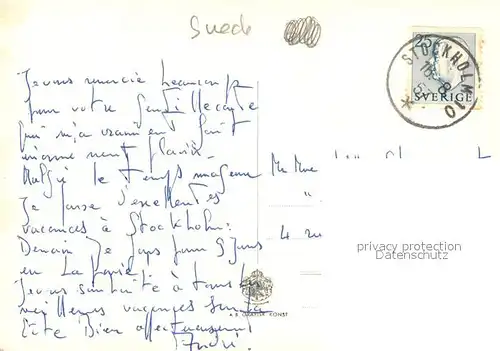 Suede
Je vous remercie beaucoup
pour votre gentille carte
qui m'a vraiment fait
énormément plaisir.
Malgré le temps
Je passe d'excellentes
vacances à Stockholm.
Demain je pars pour 9 jours
en Laponie
Je vous souhaite à tous les
meilleures vacances
Bien affectueusement
André.
25
STOCKHOLM 10
SVERIGE
Mr Mme
4
privacy protection
AdsMailEurope
A B GRAFISK KONST